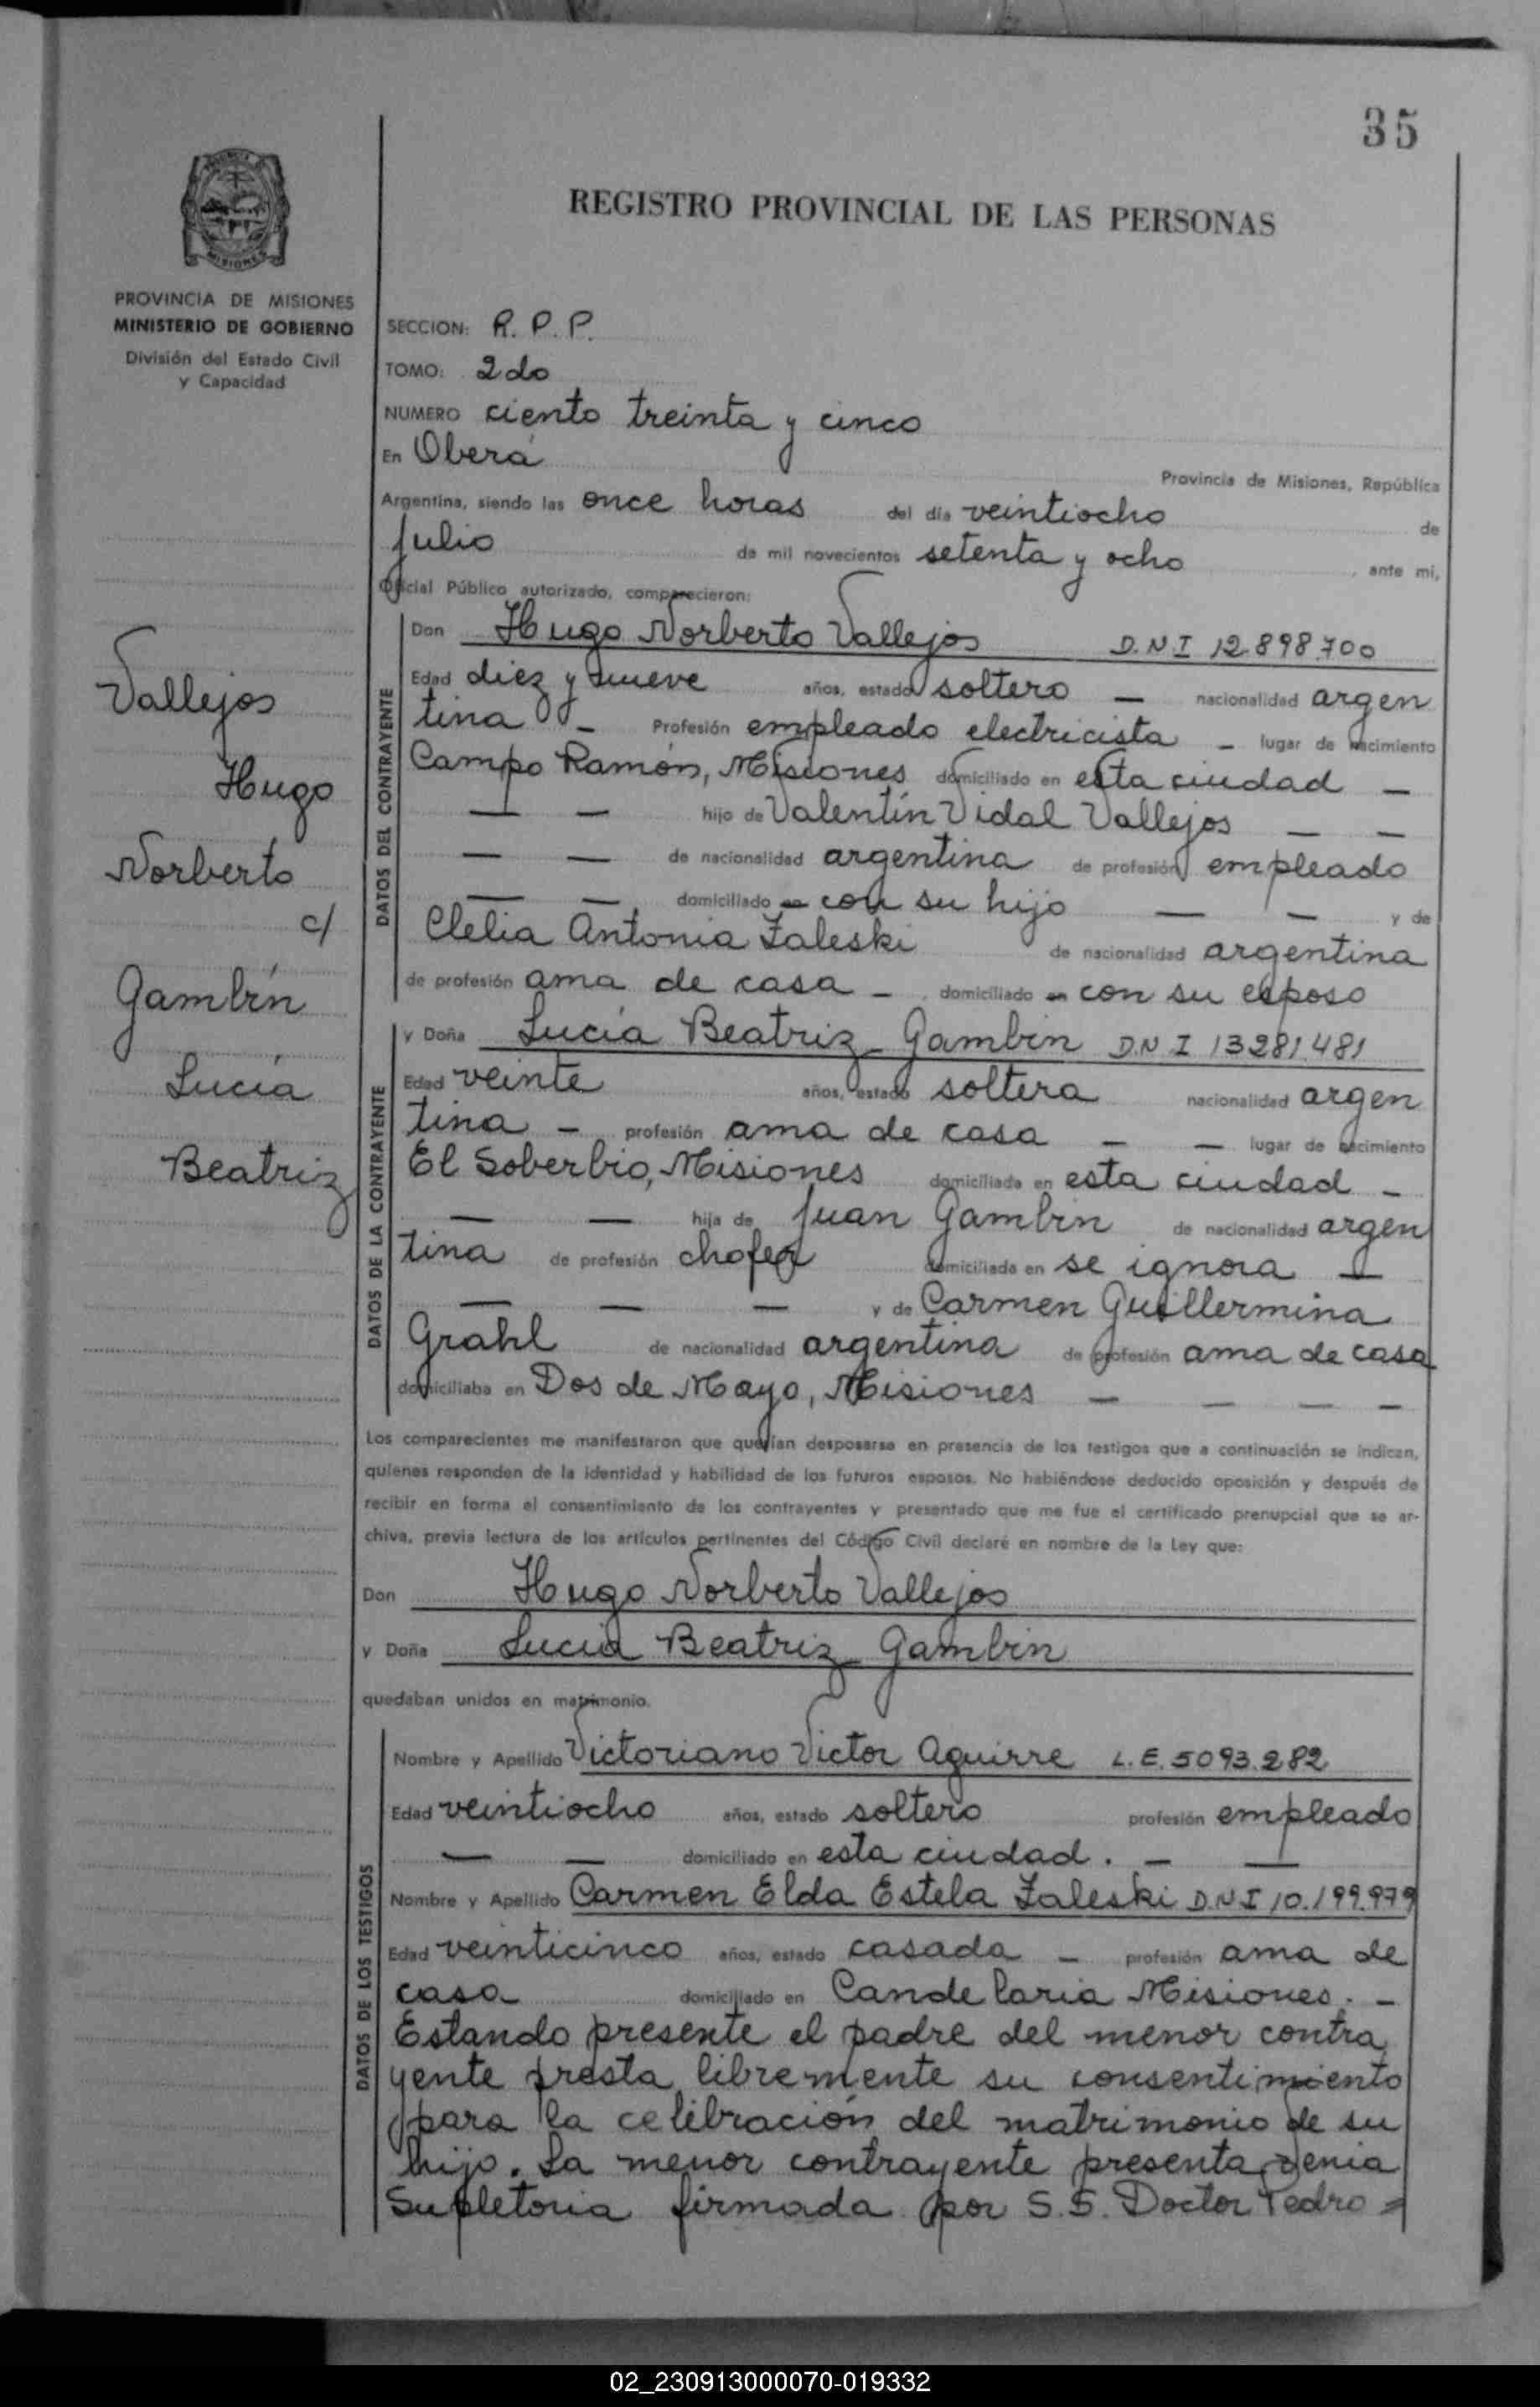 35
PROVINCIA DE MISIONES
MINISTERIO DE GOBIERNO
División del Estado Civil
y Capacidad
Vallejos
Hugo
Norberto
c/
Gambín
Lucía
Beatriz
REGISTRO PROVINCIAL DE LAS PERSONAS
SECCION: R. P. P.
TOMO: 2do
NUMERO ciento treinta y cinco
En Oberá Provincia de Misiones, República
Argentina, siendo las once horas del día veintiocho de
julio de mil novecientos setenta y ocho, ante mi,
Oficial Público autorizado, comparecieron:
DATOS DEL CONTRAYENTE
Don Hugo Norberto Vallejos D.N.I 12.898.700
Edad diez y nueve años, estado soltero — nacionalidad argen
tina — Profesión empleado electricista — lugar de nacimiento
Campo Ramón, Misiones domiciliado en esta ciudad —
— — hijo de Valentín Vidal Vallejos — —
— — de nacionalidad argentina de profesión empleado
— — domiciliado en con su hijo — — y de
Clelia Antonia Zaleski de nacionalidad argentina
de profesión ama de casa — domiciliado en con su esposo
DATOS DE LA CONTRAYENTE
y Doña Lucía Beatriz Gambín D.N I 13281.481
Edad veinte años, estado soltera nacionalidad argen
tina — profesión ama de casa — — lugar de nacimiento
El Soberbio, Misiones domiciliada en esta ciudad —
— — hija de Juan Gambín de nacionalidad argen
tina de profesión chofer domiciliada en se ignora —
— — — y de Carmen Guillermina
Grahl de nacionalidad argentina de profesión ama de casa
domiciliaba en Dos de Mayo, Misiones — — — —
Los comparecientes me manifestaron que querían desposarse en presencia de los testigos que a continuación se indican,
quienes responden de la identidad y habilidad de los futuros esposos. No habiéndose deducido oposición y después de
recibir en forma el consentimiento de los contrayentes y presentado que me fue el certificado prenupcial que se ar-
chiva, previa lectura de los artículos pertinentes del Código Civil declaré en nombre de la Ley que:
Don Hugo Norberto Vallejos
y Doña Lucía Beatriz Gambín
quedaban unidos en matrimonio.
DATOS DE LOS TESTIGOS
Nombre y Apellido Victoriano Victor Aguirre L.E. 5093.282
Edad veintiocho años, estado soltero profesión empleado
— — domiciliado en esta ciudad. — —
Nombre y Apellido Carmen Elda Estela Zaleski D.N.I 10.199.979
Edad veinticinco años, estado casada — profesión ama de
casa domiciliado en Candelaria Misiones. —
Estando presente el padre del menor contra
yente presta libremente su consentimiento
para la celibración del matrimonio de su
hijo. La menor contrayente presenta venia
Supletoria firmada por S.S. Doctor Pedro =
02_230913000070-019332